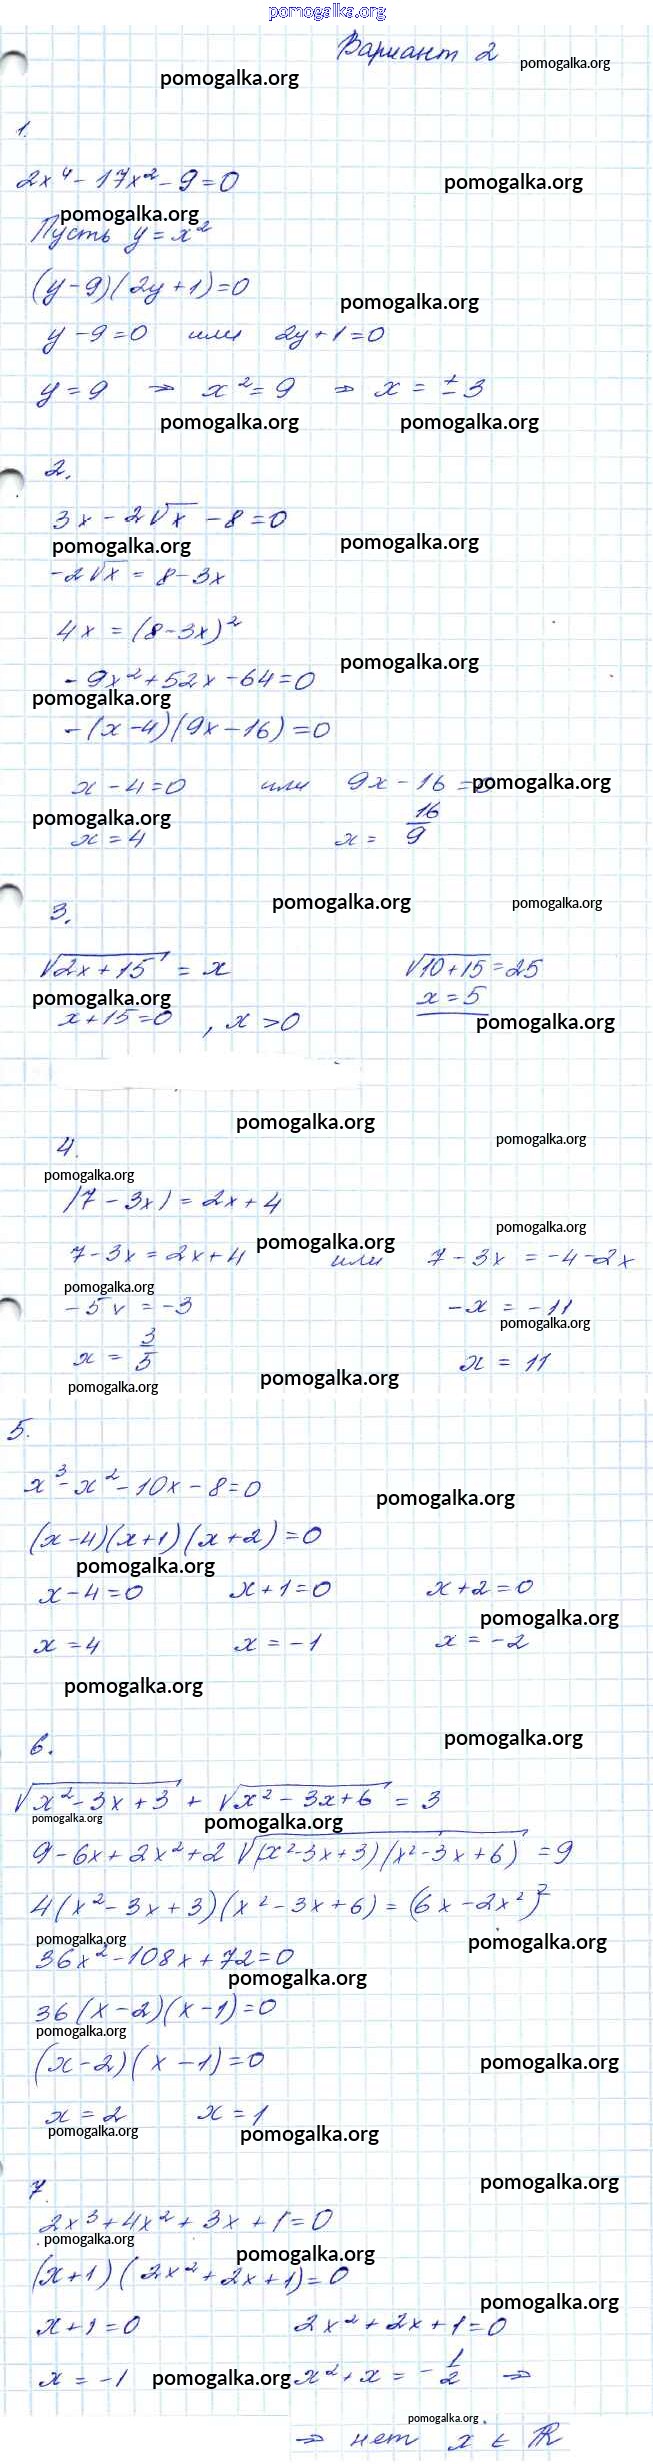 pomogalka.org
Вариант 2 pomogalka.org
pomogalka.org
1.
2x⁴ - 17x² - 9 = 0 pomogalka.org
pomogalka.org
Пусть y = x²
(y - 9)(2y + 1) = 0 pomogalka.org
y - 9 = 0 или 2y + 1 = 0
y = 9 ⇒ x² = 9 ⇒ x = ± 3
pomogalka.org pomogalka.org
2.
3x - 2√x - 8 = 0
pomogalka.org pomogalka.org
-2√x = 8 - 3x
4x = (8 - 3x)²
pomogalka.org
- 9x² + 52x - 64 = 0
pomogalka.org
- (x - 4)(9x - 16) = 0
x - 4 = 0 или 9x - 16 = 0 pomogalka.org
pomogalka.org
x = 4 x = 16/9
pomogalka.org pomogalka.org
3.
√(2x + 15) = x √(10 + 15) = 25
pomogalka.org
x + 15 = 0 , x > 0 x = 5
pomogalka.org
pomogalka.org pomogalka.org
4.
pomogalka.org
|7 - 3x| = 2x + 4
pomogalka.org pomogalka.org
7 - 3x = 2x + 4 или 7 - 3x = -4 - 2x
pomogalka.org
- 5x = -3 -x = -11
pomogalka.org
x = 3/5 x = 11
pomogalka.org pomogalka.org
5.
x³ - x² - 10x - 8 = 0
pomogalka.org
(x - 4)(x + 1)(x + 2) = 0
pomogalka.org
x - 4 = 0 x + 1 = 0 x + 2 = 0
pomogalka.org
x = 4 x = -1 x = -2
pomogalka.org
6. pomogalka.org
√(x² - 3x + 3) + √(x² - 3x + 6) = 3
pomogalka.org pomogalka.org
9 - 6x + 2x² + 2√((x² - 3x + 3)(x² - 3x + 6)) = 9
4(x² - 3x + 3)(x² - 3x + 6) = (6x - 2x²)²
pomogalka.org pomogalka.org
36x² - 108x + 72 = 0
pomogalka.org
36(x - 2)(x - 1) = 0
pomogalka.org
(x - 2)(x - 1) = 0 pomogalka.org
x = 2 x = 1
pomogalka.org pomogalka.org
7. pomogalka.org
2x³ + 4x² + 3x + 1 = 0
pomogalka.org pomogalka.org
(x + 1)(2x² + 2x + 1) = 0
pomogalka.org
x + 1 = 0 2x² + 2x + 1 = 0
x = -1 pomogalka.org x² + x = - 1/2 ⇒
pomogalka.org
⇒ нет x ∈ ℝ